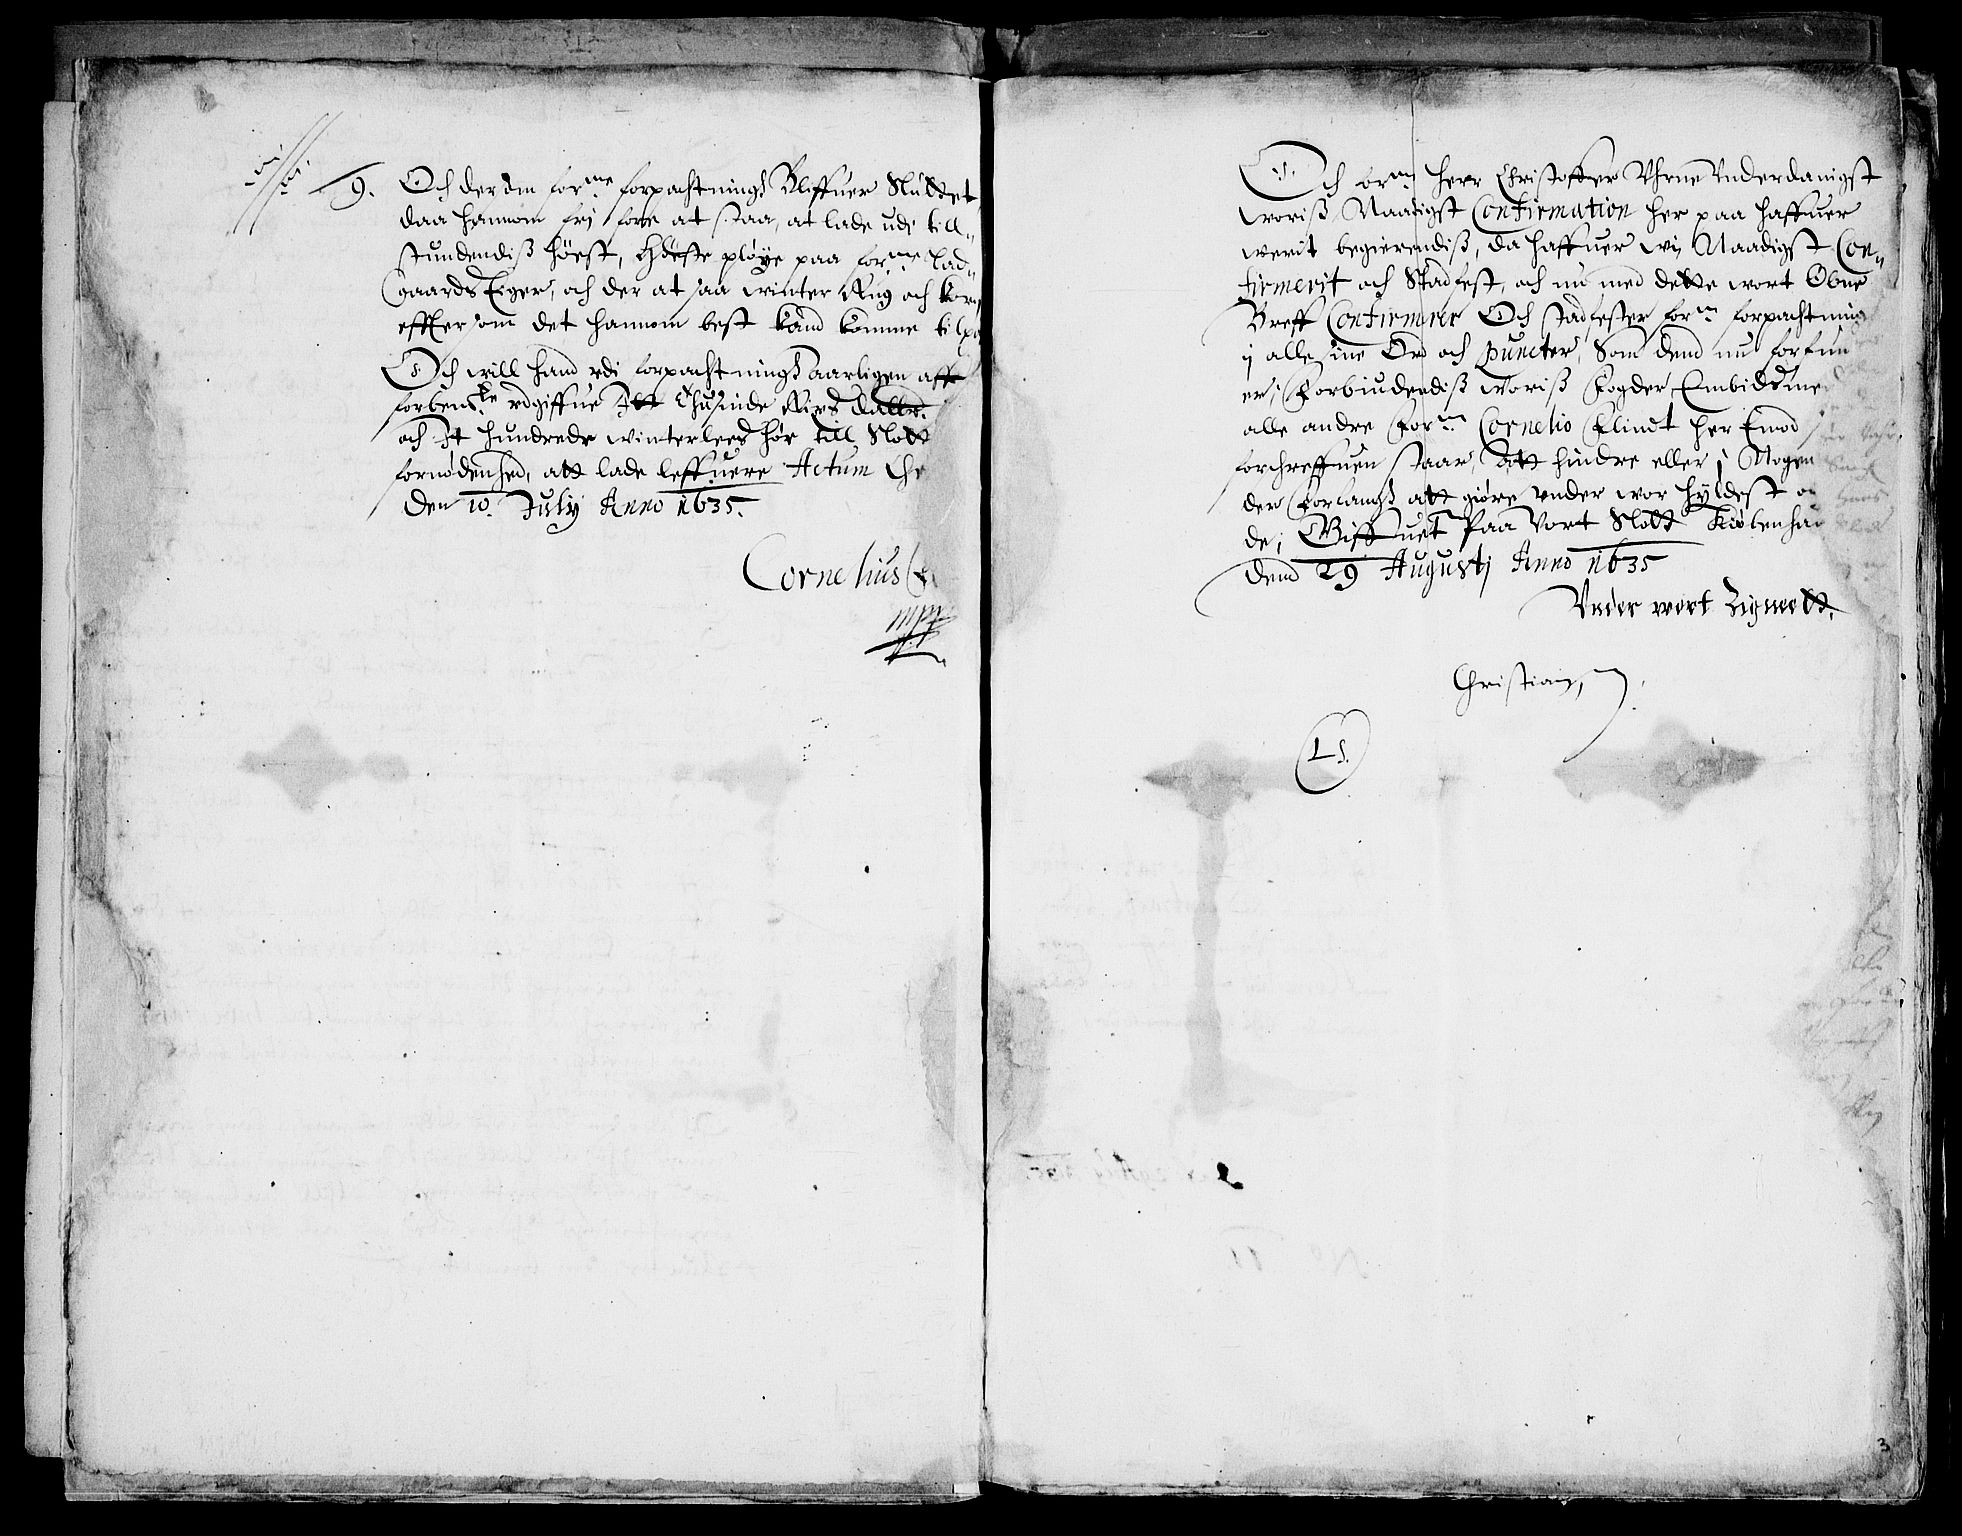 9. Och der som for:ne forpachtningh Bliffuer Sluttet
daa hannom frj fore at staa, at lade udi till„
stundendiß høest, Efste pløye paa for:ne lad„
gaards Eiger, och der at saa winter Rug och korn
effter som det hannom best kand komme til pa
Och will hand udi forpachtningh aarligen aff
forben:te udgiffue Itt Thusinde Rixd daller.
och It hundrede winterleed hør till Slott
fornødenhed, att lade leffuere Actum
Den 10. July Anno 1635.
Cornelius
mpp
Och for:ne herr Christoffer Vhrne Vnderdanigst
woriß Naadigst Confirmation her paa haffuer
werit begierendiß, da haffuer wij Naadigst Con„
firmerit och Stadfest, och nu med dette wort Obne
Breff Confirmerer Och stadfester for:ne forpachtning
ij alle sine Ord och puncter, Som dend nu forfun
er, Forbiudendiß woriß Fogder Embidsmend
alle andre For:ne Cornelio Flindt her Emod
forschreffuen staar, Att hindre eller i Nogen
der Forfangh att giøre vnder wor hyldest o
de, Giffuet Paa Vort Slott Kiøbenhau
Dend 29 Augustj Anno 1635
Vnder wort Zignett.
Christian,
LS.
3